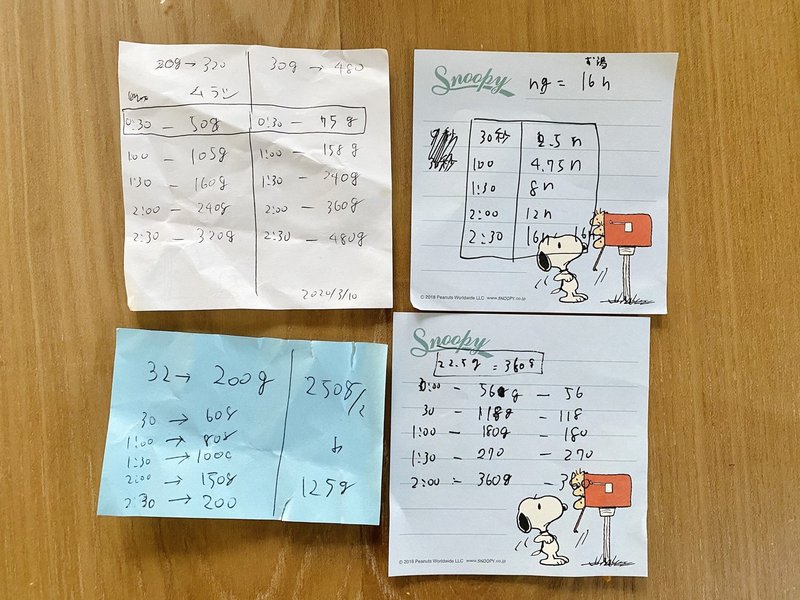 20g → 320
ムラシ
0:30 — 50g
1:00 — 105g
1:30 — 160g
2:00 — 240g
2:30 — 320g
30g → 480
0:30 — 75g
1:00 — 158g
1:30 — 240g
2:00 — 360g
2:30 — 480g
2020/3/10
Snoopy
お湯
ng = 16n
30秒 2.5n
1:00 4.75n
1:30 8n
2:00 12n
2:30 16n
© 2018 Peanuts Worldwide LLC www.SNOOPY.co.jp
32 → 200g
30 → 60g
1:00 → 80g
1:30 → 100g
2:00 → 150g
2:30 → 200
250g/2
125g
Snoopy
22.5g = 360g
0:00 — 56g — 56
30 — 118g — 118
1:00 — 180g — 180
1:30 — 270 — 270
2:00 — 360g
© 2018 Peanuts Worldwide LLC www.SNOOPY.co.jp